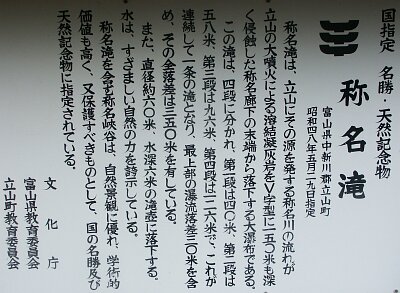 国指定 名勝・天然記念物
称名滝
富山県中新川郡立山町
昭和四八年五月二九日指定
称名滝は、立山にその源を発する称名川の流れが
立山の大噴火による溶結凝灰岩をV字型に一五〇米も深
く侵蝕した称名廊下の末端から落下する大瀑布である。
この滝は、四段に分かれ、第一段は四〇米、第二段は
五八米、第三段は九六米、第四段は一二六米で、これが
連続して一条の滝となり、最上部の瀑流落差三〇米を含
め、その全落差は三五〇米を有している。
また、直径約六〇米、水深六米の滝壺に落下する。
水は、すさまじい自然の力を誇示している。
称名滝を含む称名峡谷は、自然景観に優れ、学術的
価値も高く、又保護すべきものとして、国の名勝及び
天然記念物に指定されている。
文化庁
富山県教育委員会
立山町教育委員会